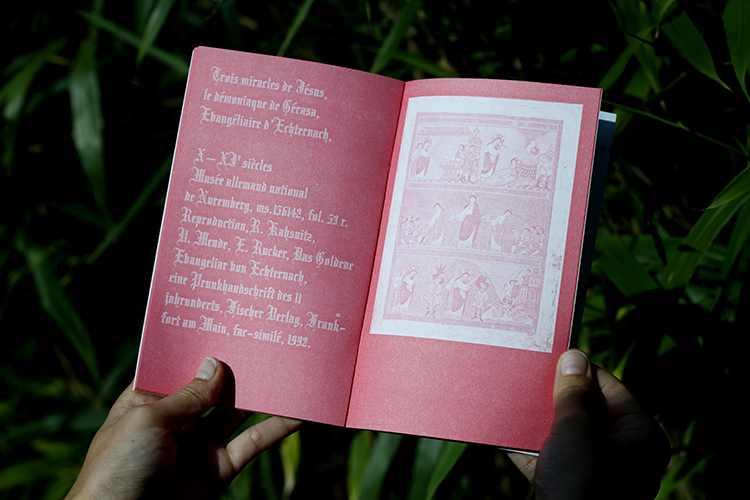 Trois miracles de Jésus,
le démoniaque de Gérasa,
Evangéliaire d'Echternach,
X–XIe siècles
Musée allemand national
de Nuremberg, ms.156142, fol. 53 r.
Reproduction, R. Kahsnitz,
U. Mende, E. Rucker, Das Goldene
Evangeliar von Echternach,
eine Prunkhandschrift des 11
jahrunderts, Fischer Verlag, Frank-
fort am Main, fac-similé, 1992.